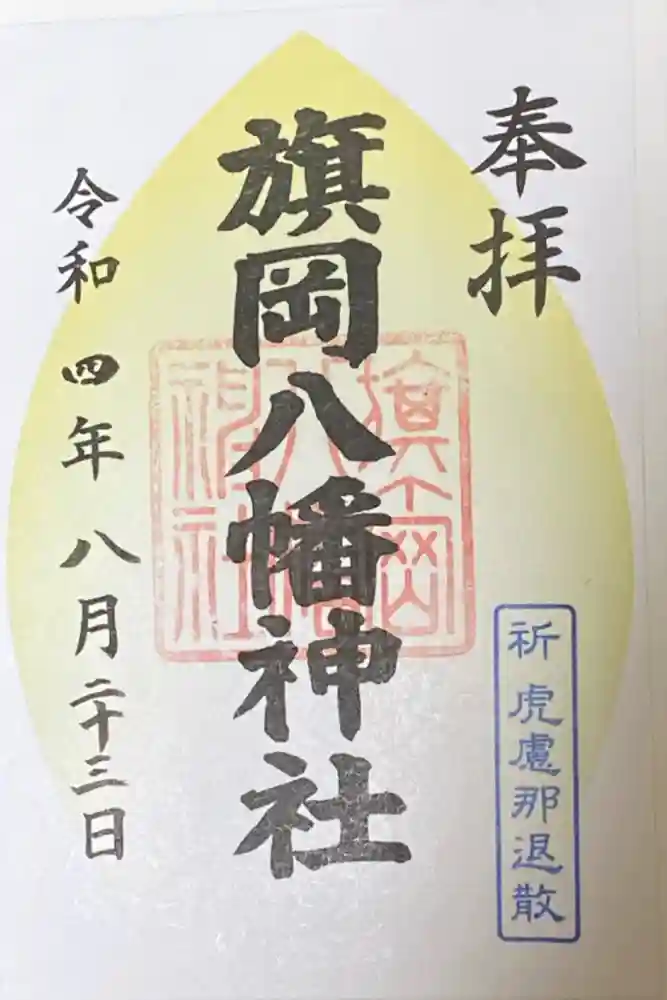 奉拝
祈 虎慮那退散
旗岡八幡神社
旗岡
八幡
神社
令和四年八月二十三日